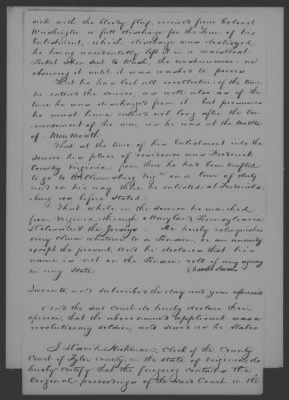 sick with the bloody flux, received from Colonel
Washington a full discharge for the Term of his
Enlistment, which discharge was destroyed
he having accidentally left it in a waistcoat
Pocket when sent to Wash, the washerwoman not
observing it until it was washed to pieces
That he has lost all recollection of the time
he entered the service, as well also as of the
time he was discharged from it but presumes
he must have entered not long after the com
mencement of the war as he was at the Battle
of Monmouth
That at the time of his Enlistment into the
service his place of residence was Frederick
County Virginia from there he had been drafted
to go to Williamsburg on a tour of duty
and on his way there he enlisted at Fredericks
burg as before stated
That while in the service he marched
from Virginia through Maryland, Pennsylvania
Delaware & the Jerseys. He hereby relinquishes
every claim whatever to a Pension or an annuity
except the present, and he declares that his
name is not on the Pension roll of any agency
in any State
Sworn to, and subscribed the day and year aforesaid
And the said Court do hereby declare their
opinion, that the above named applicant was a
revolutionary soldier, and served as he states
I David Hickman, Clerk of the County
Court of Tyler County in the state of Virginia do
hereby certify that the foregoing contains the
Original proceedings of the said Court in the